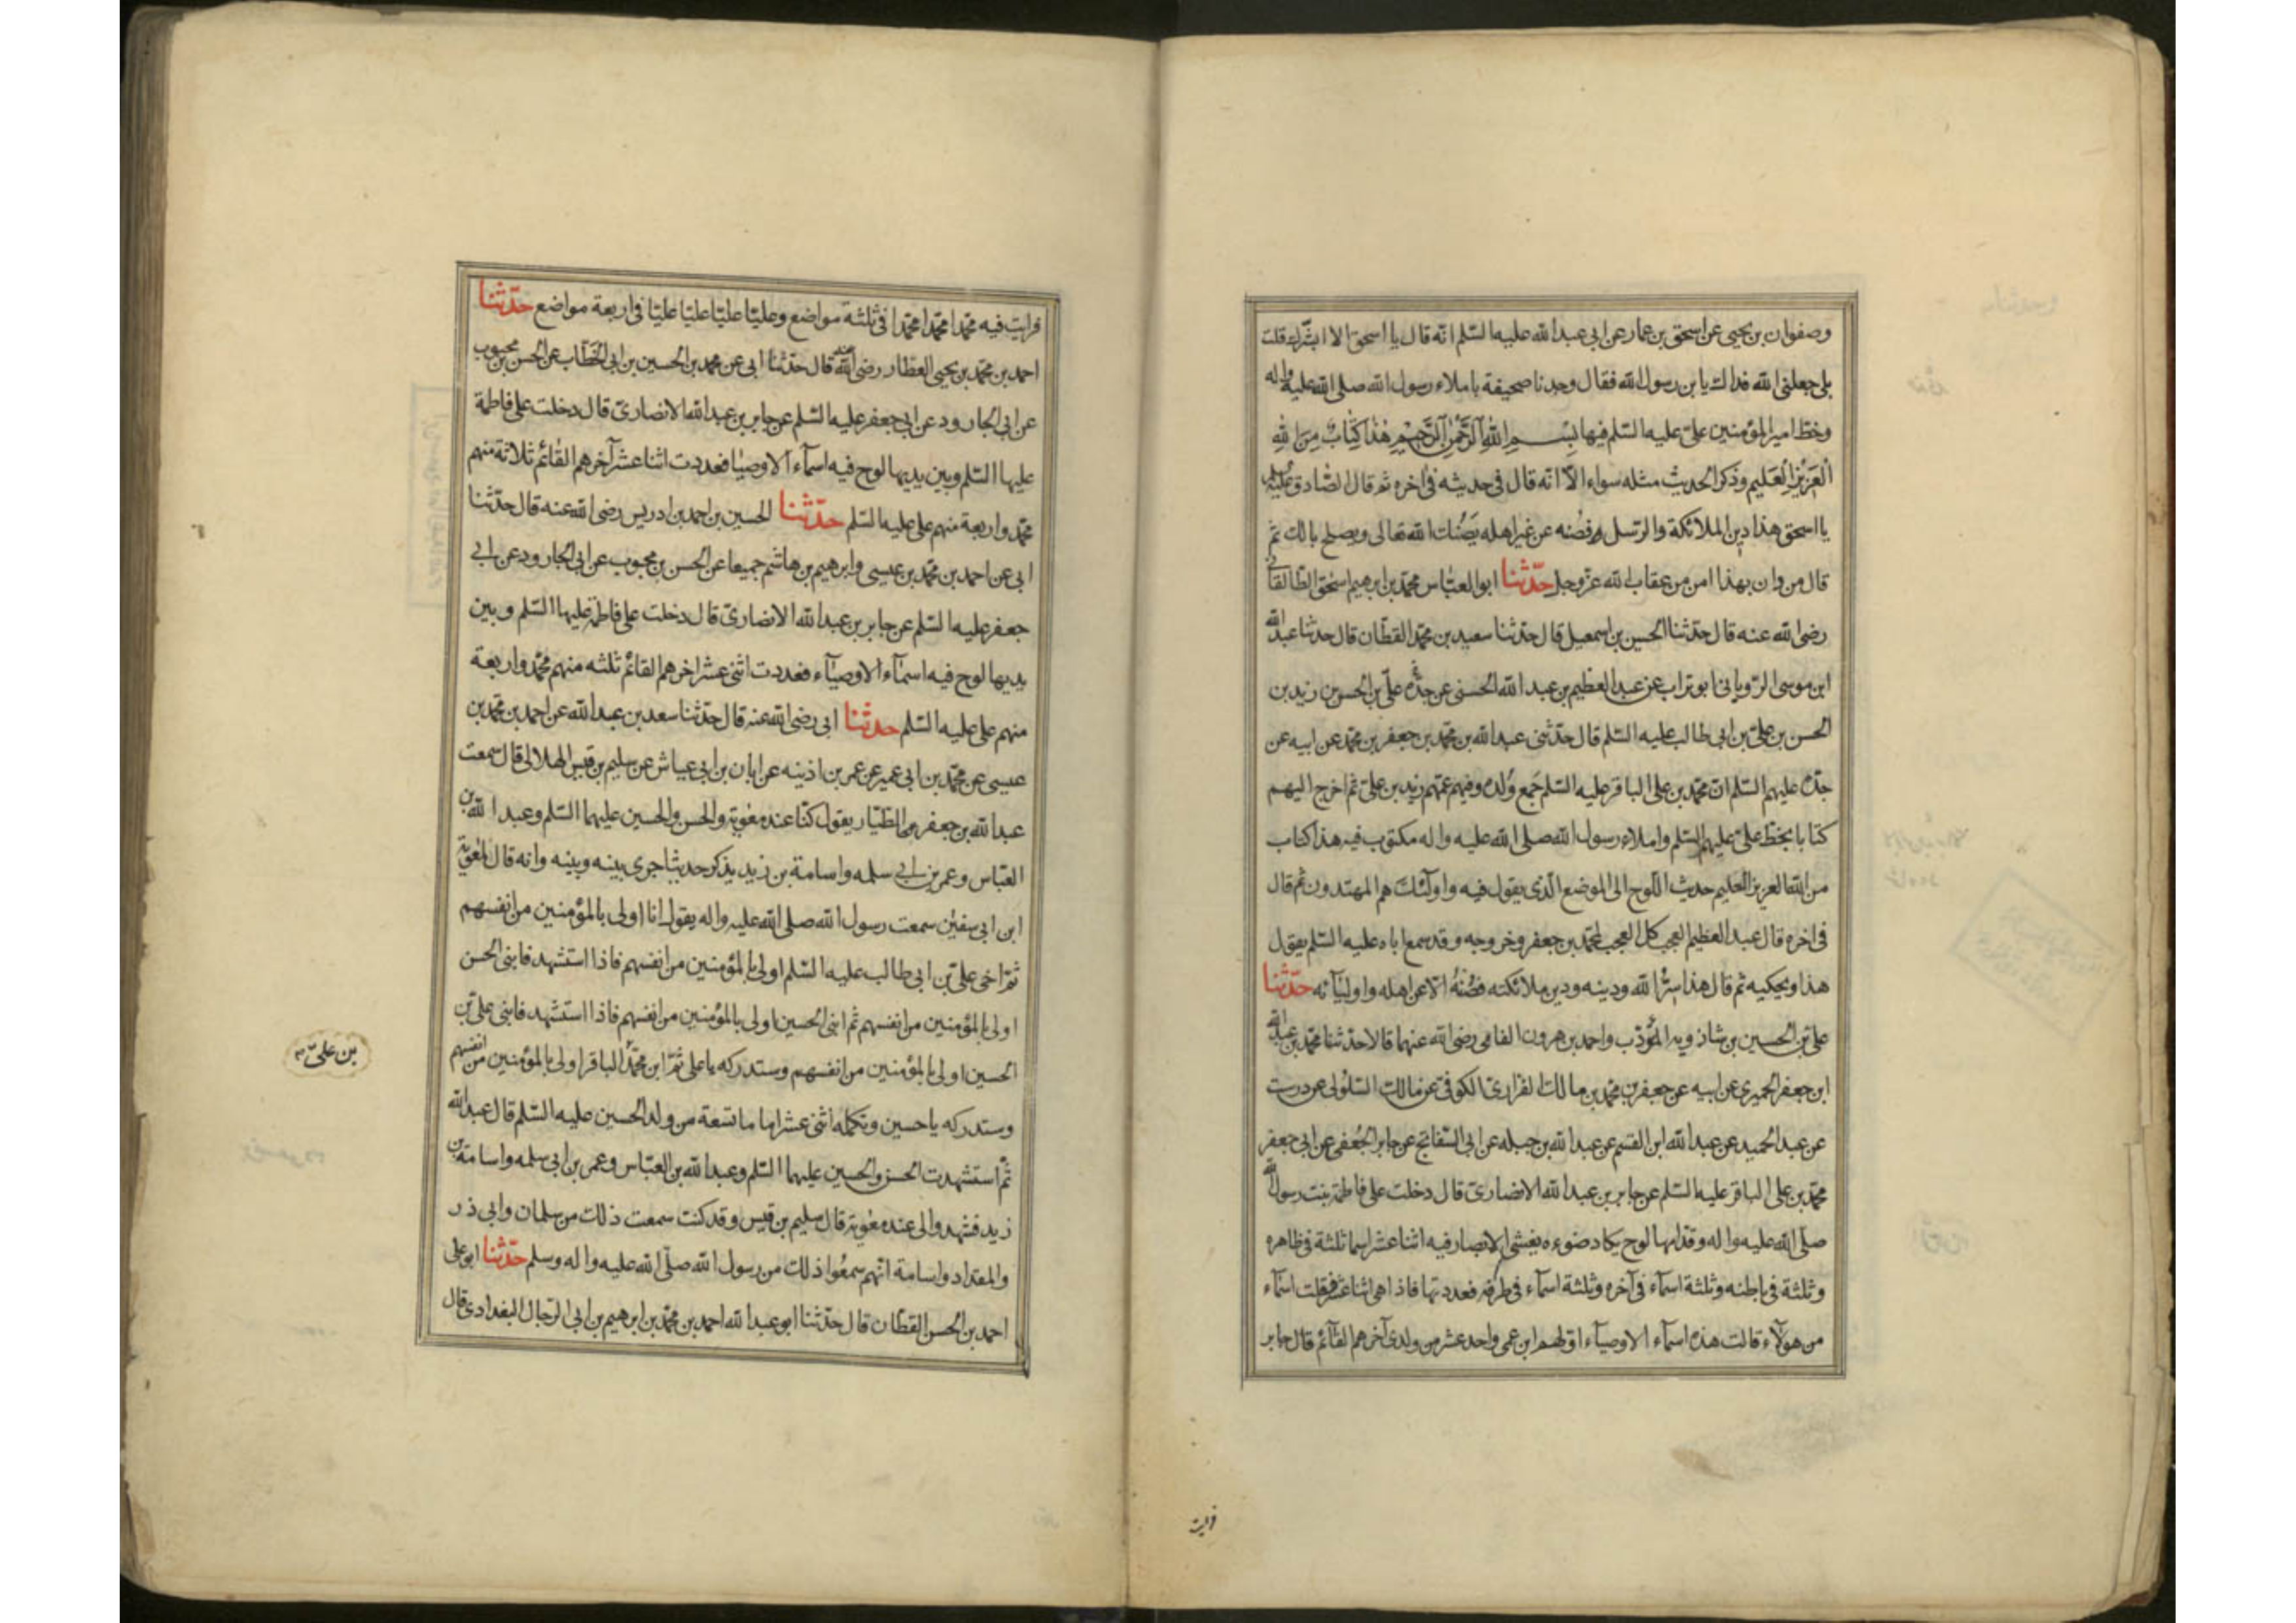 وصفوان بن يحيى عن اسحق بن عمار عن ابى عبد الله عليه السّلم انّه قال يا اسحق الا ابشّرك قلت
بلى جعلنى الله فداك يا بن رسول الله فقال وجدنا صحيفة باملاء رسول الله صلى الله عليه واله
وخطّ امير المؤمنين علىّ عليه السّلم فيها بِسْمِ اللهِ الرَّحْمٰنِ الرَّحِيْمِ هٰذَا كِتَابٌ مِنَ اللهِ
الْعَزِيْزِ الْعَليم وذكر الحديث مثله سواء الّا انّه قال فى حديثه فى اخره ثم قال الصّادق عليه السلم
يا اسحق هذا دين الملائكة والرّسل فصُنه عن غير اهله يَصُنك الله تعالى ويصلح بالك ثم
قال من دان بهذا امن من عقاب الله عزّ وجل حدّثنا ابو العبّاس محمّد بن ابرهيم اسحٰق الطّالقانى
رضى الله عنه قال حدّثنا الحسن بن اسمعيل قال حدّثنا سعيد بن محمّد القطّان قال حدثنا عبد الله
ابن موسى الرّويانى ابو تراب عن عبد العظيم بن عبد الله الحسنى عن جدّه علىّ بن الحسن بن زيد بن
الحسن بن علىّ بن ابى طالب عليه السّلم قال حدّثنى عبد الله بن محمّد بن جعفر بن محمّد عن ابيه عن
جدّه عليهم السّلم انّ محمّد بن على الباقر عليه السّلم جَمع وُلده وفيهم عمّهم زيد بن علىّ ثم اخرج اليهم
كتابا بخطّ علىّ عليهم السّلم واملاء رسول الله صلى الله عليه واله مكتوب فيه هذا كتاب
من الله العزيز الحليم حديث اللّوح الى الموضع الّذى يقول فيه واولٓئك هم المهتدون ثم قال
فى اخره قال عبد العظيم العجب كل العجب لمحمّد بن جعفر وخروجه وقد سمع اباه عليه السّلم يقول
هذا ويحكيه ثم قال هذا سرّ الله ودينه ودين ملائكته فصُنْهُ الّا عن اهله واوليٓائه حدّثنا
علىّ بن الحسين بن شاذويه المؤدّب واحمد بن هرون الفامى رضى الله عنهما قالا حدّثنا محمّد بن عبد الله
ابن جعفر الحميرى عن ابيه عن جعفر بن محمّد بن مالك الفزارىّ الكوفى عن مالك السّلولى عن درست
عن عبد الحميد عن عبد الله ابن القسم عن عبد الله بن جبله عن ابى السّفاتج عن جابر الجُعفى عن ابى جعفر
محمّد بن على الباقر عليه السّلم عن جابر بن عبد الله الانصارىّ قال دخلت على فاطمة بنت رسول الله
صلّى الله عليه واله وقدّامها لوح يكاد ضوءه يغشى الابصار فيه اثنا عشر اسما ثلثة فى ظاهره
وثلثة فى باطنه وثلثة اسمآء فى آخره وثلثة اسمآء فى طرفه فعددتها فاذا هى اثنا عشر فقلت اسمآء
من هولٓاء قالت هذه اسمآء الاوصيآء اوّلهم ابن عمى واحد عشر من ولدى آخرهم القآئم قال جابر
فرايت
فرايت فيه محمّدا محمّدا محمّدا فى ثلثة مواضع وعليّا عليّا عليّا عليّا فى اربعة مواضع حدّثنا
احمد بن محمّد بن يحيى العطّار رضى الله عنه قال حدّثنا ابى عن محمد بن الحسين بن ابى الخطّاب عن الحسن بن محبوب
عن ابى الجارود عن ابى جعفر عليه السّلم عن جابر بن عبد الله الانصارىّ قال دخلت على فاطمة
عليها السّلم وبين يديها لوح فيه اسمآء الاوصيٰا فعددت اثنا عشر آخرهم القٰائم ثلاثة منهم
محمّد واربعة منهم على عليه السّلم حدّثنا الحسين بن احمد بن ادريس رضى الله عنه قال حدّثنا
ابى عن احمد بن محمّد بن عيسى وابرهيم بن هاشم جميعا عن الحسن بن محبوب عن ابى الجارود عن ابى
جعفر عليه السّلم عن جابر بن عبد الله الانصارىّ قال دخلت على فاطمة عليها السّلم وبين
يديها لوح فيه اسمآء الاوصيٰآء فعددت اثنى عشر اخرهم القائم ثلثه منهم محمّد واربعة
منهم على عليه السّلم حدثنا ابى رضى الله عنه قال حدّثنا سعد بن عبد الله عن احمد بن محمّد بن
عيسى عن محمّد بن ابى عمير عن عمر بن اذينه عن ابان بن ابى عياش عن سليم بن قيس الهلالى قال سمعت
عبد الله بن جعفر الطيّار يقول كنّا عند معٰوية والحسن والحسين عليهما السّلم وعبد الله بن
العبّاس وعمر بن ابى سلمه واسامة بن زيد يذكر حديثا جرى بينه وبينه وانه قال لمعٰوية
ابن ابى سفيٰن سمعت رسول الله صلى الله عليه واله يقول انا اولى بالمؤمنين من انفسهم
ثمّ اخى علىّ بن ابى طالب عليه السّلم اولى بالمؤمنين من انفسهم فاذا استشهد فابنى الحسن
اولى بالمؤمنين من انفسهم ثم ابنى الحسين اولى بالمؤمنين من انفسهم فاذا استشهد فابنى علىّ بن
الحسين اولى بالمؤمنين من انفسهم وستدركه يا على ثمّ ابن محمّد الباقر اولى بالمؤمنين من انفسهم
بن علىّ
وستدركه يا حسين وتكمله اثنى عشر اماما تسعة من ولد الحسين عليه السّلم قال عبد الله
ثمّ استشهدت الحسن والحسين عليهما السّلم وعبد الله بن العبّاس وعمر بن ابى سلمه واسامة بن
زيد فشهدوا لى عند معٰوية قال سليم بن قيس وقد كنت سمعت ذلك من سلمان وابى ذر
والمقداد واسامة انّهم سمعُوا ذلك من رسول الله صلّى الله عليه واله وسلم حدّثنا ابو على
احمد بن الحسن القطّان قال حدّثنا ابو عبد الله احمد بن محمّد بن ابرهيم بن ابى الرّجال البغدادى قال